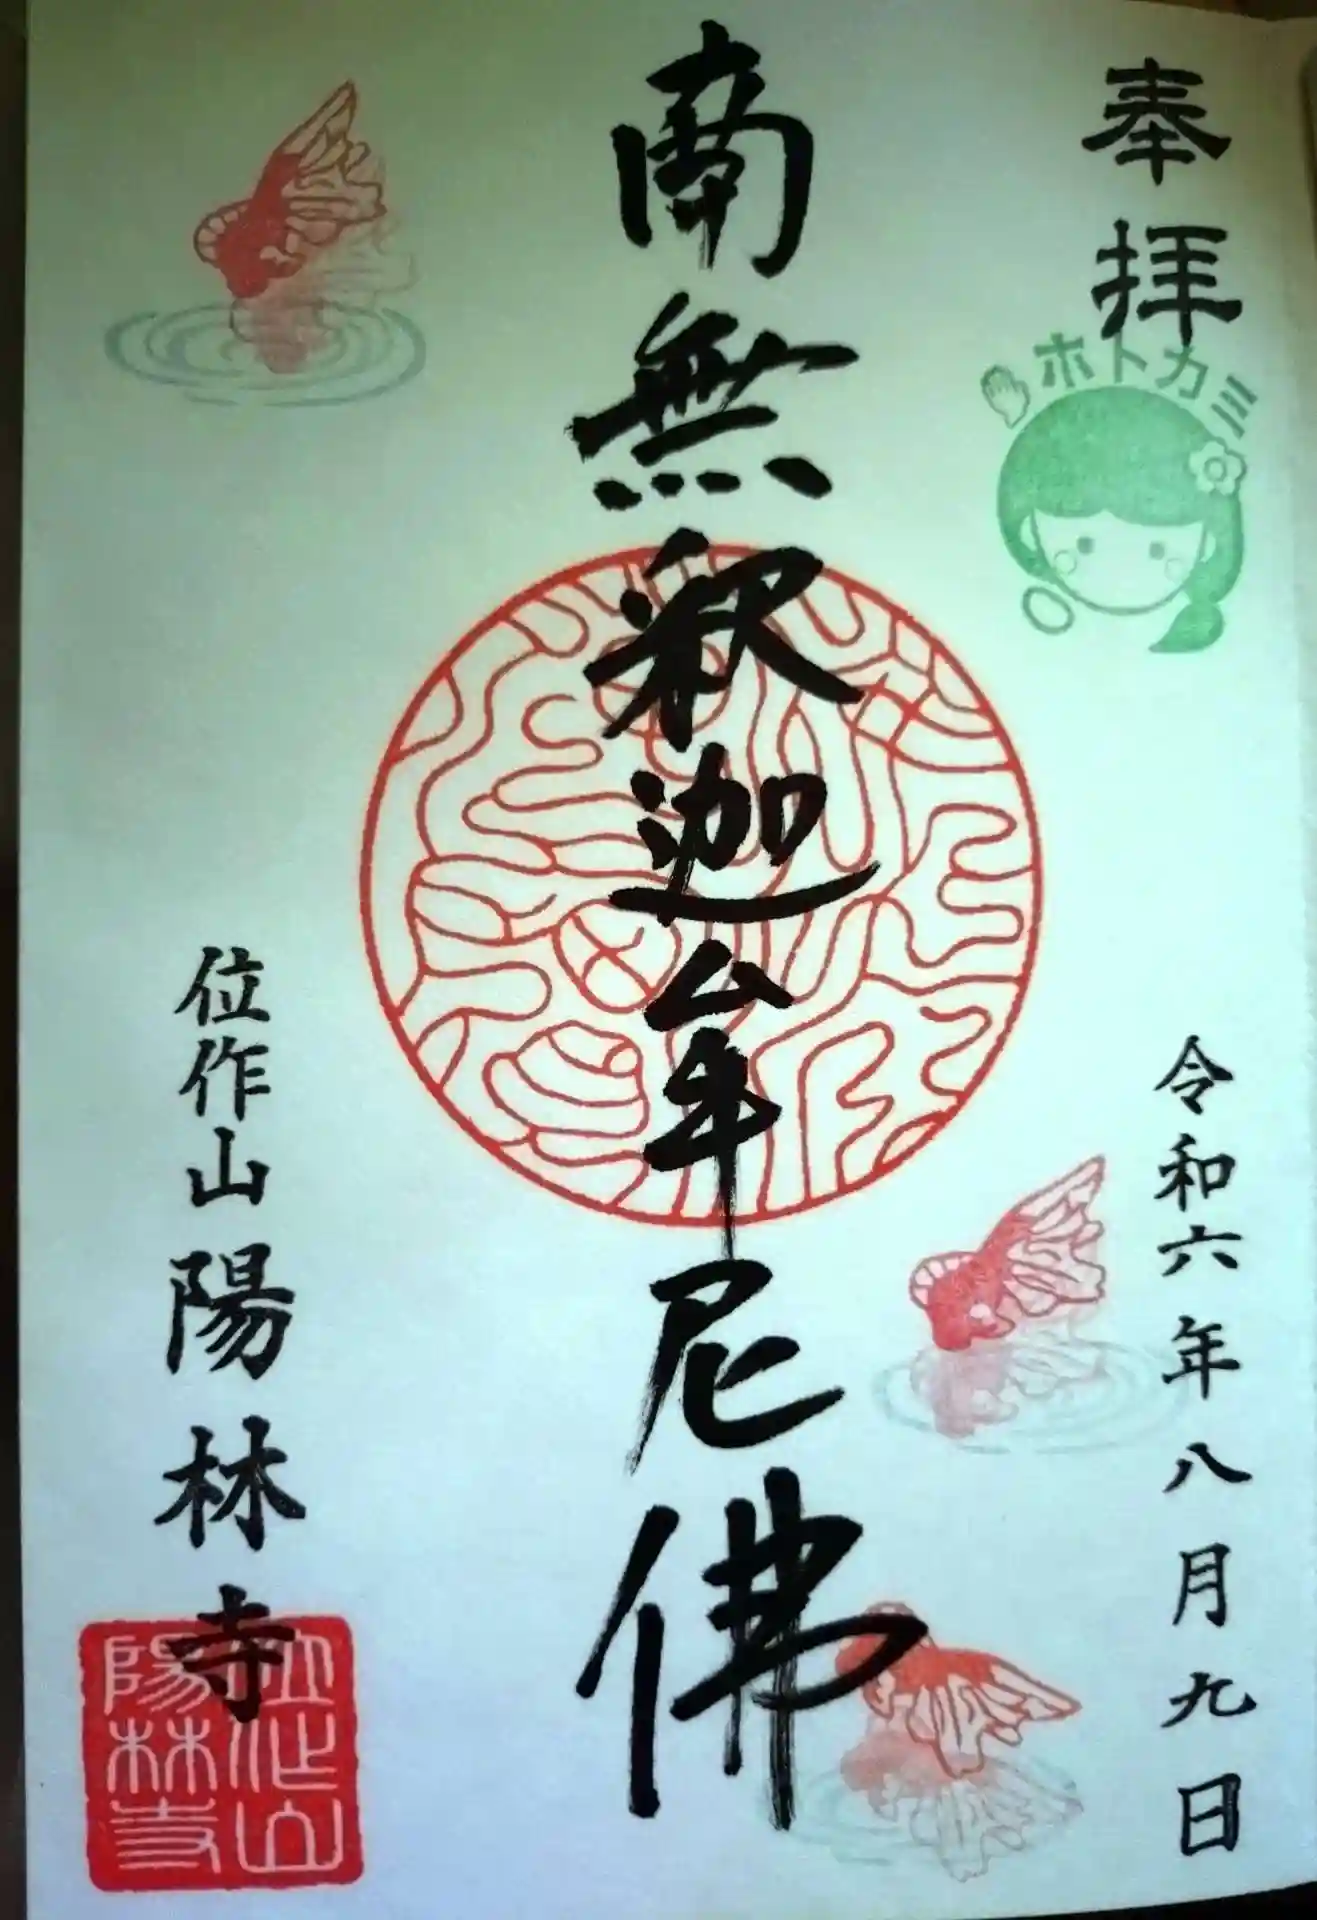 奉拝
ホトカミ
令和六年八月九日
南無釈迦牟尼佛
位作山陽林寺
位作山
陽林寺